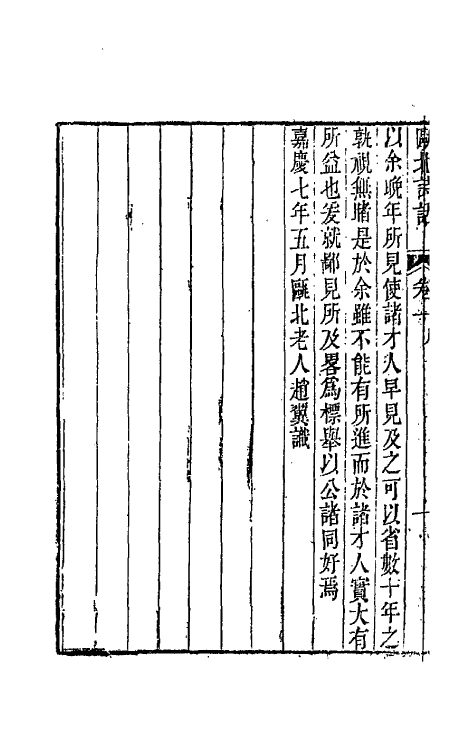 甌北詩話
以余晚年所見使諸才人早見及之可以省數十年之
孰視無睹是於余雖不能有所進而於諸才人實大有
所益也爰就鄙見所及畧為標舉以公諸同好焉
嘉慶七年五月甌北老人趙翼識